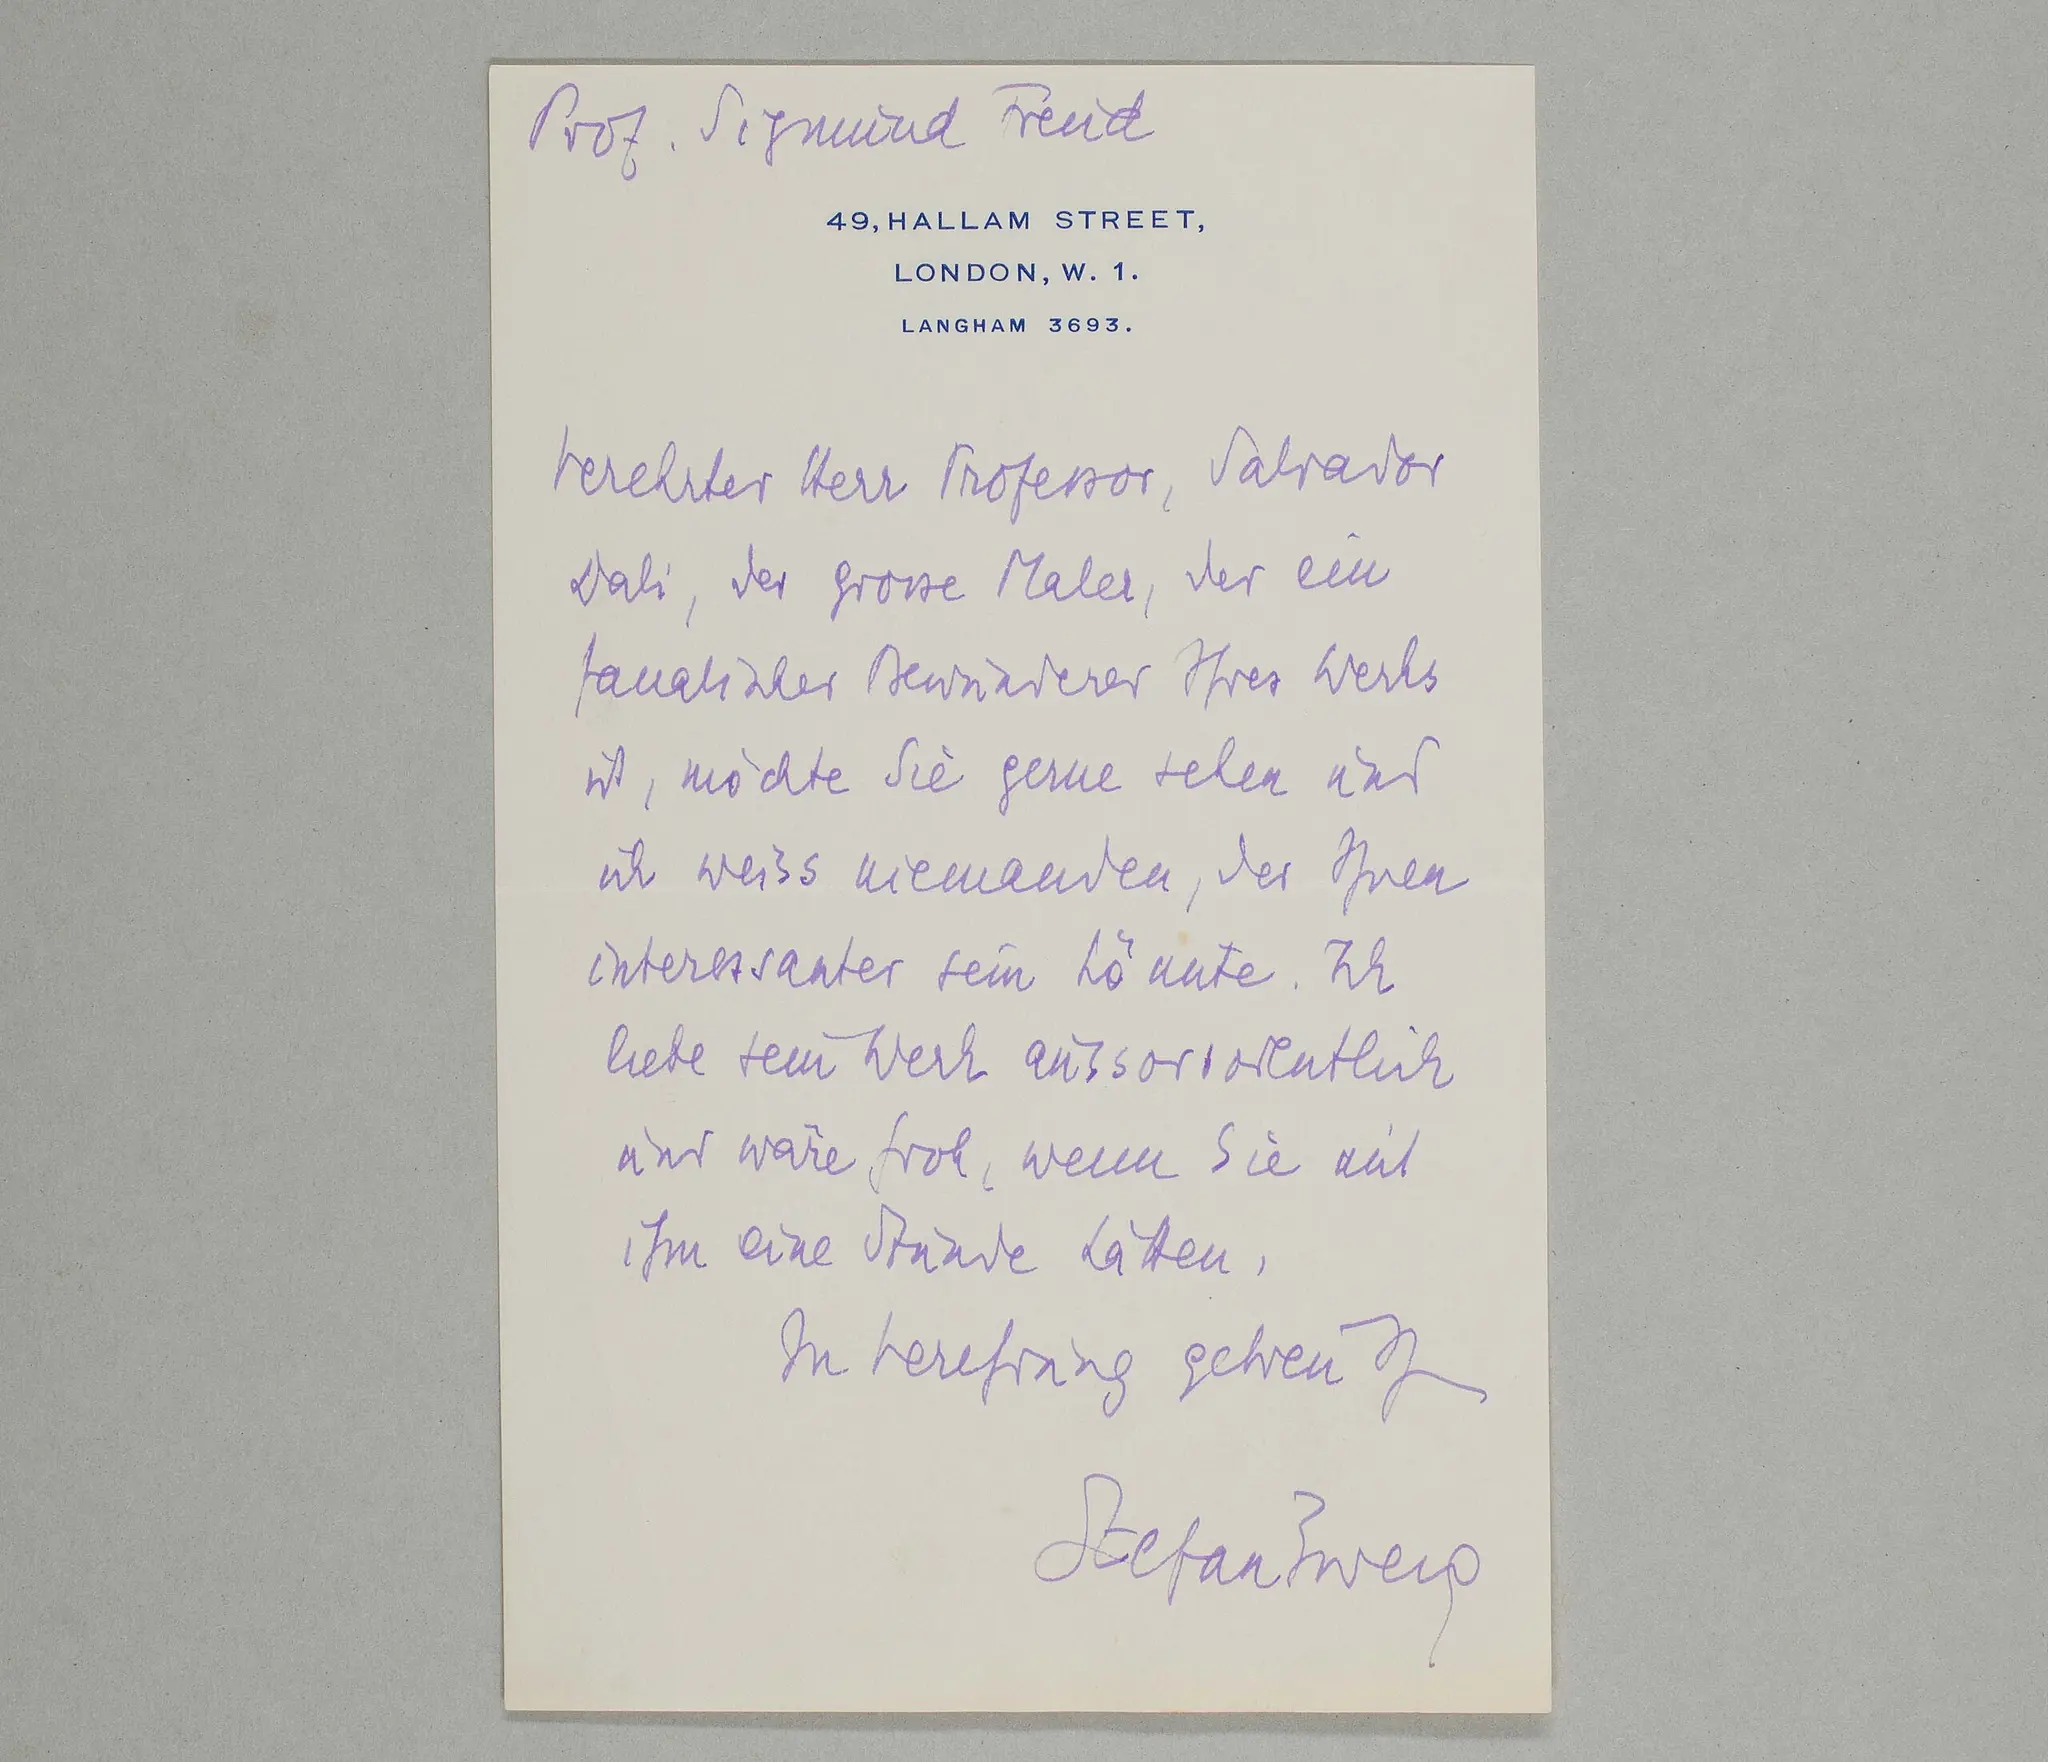 Prof. Sigmund Freud
49, HALLAM STREET,
LONDON, W. 1.
LANGHAM 3693.
Verehrter Herr Professor, Salvador
Dali, der grosse Maler, der ein
fanatischer Bewunderer Ihres Werks
ist, möchte Sie gerne sehen und
ich weiss niemanden, der Ihnen
interessanter sein könnte. Ich
liebe sein Werk aussorordentlich
und wäre froh, wenn Sie mit
ihm eine Stunde hätten.
In Verehrung getreu Ihr
Stefan Zweig